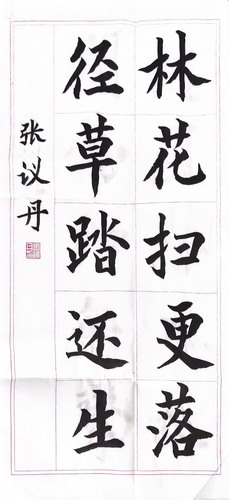 林花扫更落
径草踏还生
张议丹